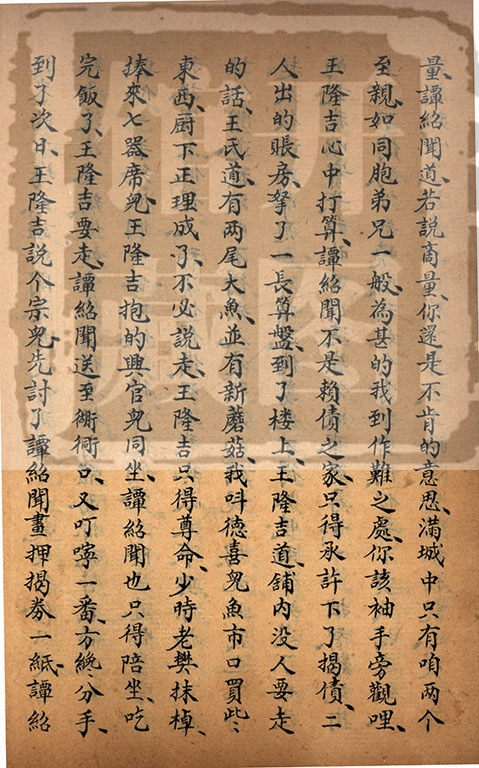 量、譚紹聞道、若說商量、你還是不肯的意思、滿城中只有咱两个
至親、如同胞弟兄一般、為甚的我到作難之處、你該袖手旁觀哩、
王隆吉心中打算、譚紹聞不是賴債之家、只得承許下了揭債、二
人出的賬房、拏了一長算盤、到了楼上、王隆吉道、舖内没人要走
的話、王氏道、有两尾大魚、並有新蘑菇、我呌德喜兒魚市口買些、
東西、厨下正理成了、不必說走、王隆吉只得尊命、少時老樊抹棹、
捧來七器席兒、王隆吉抱的興官兒同坐、譚紹聞也只得陪坐、吃
完飯了、王隆吉要走、譚紹聞送至衚衕口、又叮嚀一番、方纔分手、
到了次日、王隆吉說个宗兒、先討了譚紹聞畫押揭券一紙、譚紹